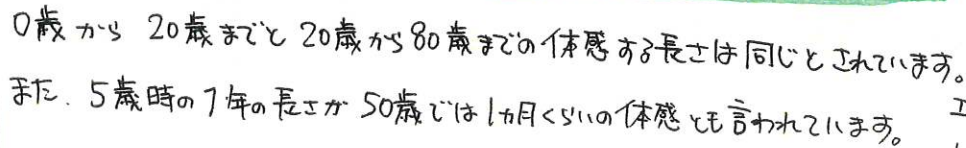 0歳から 20歳までと 20歳から80歳までの体感する長さは同じとされています。
また、5歳時の1年の長さが 50歳では1ヵ月くらいの体感とも言われています。